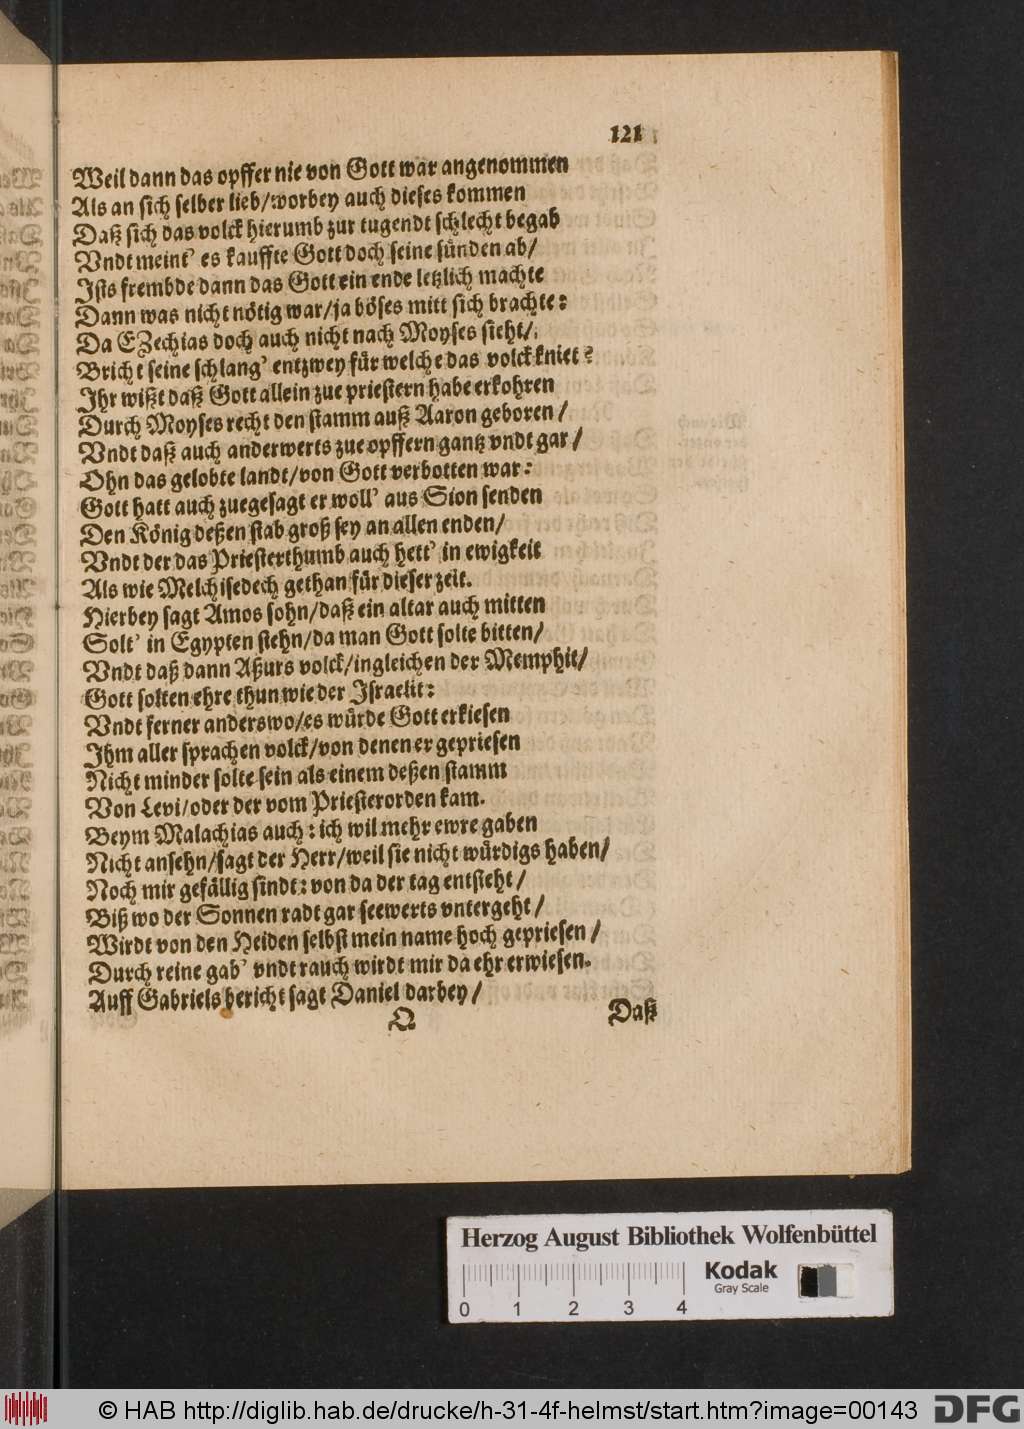 121
Weil dann das opffer nie von Gott war angenommen
Als an sich selber lieb/worbey auch dieses kommen
Daß sich das volck hierumb zur tugendt schlecht begab
Vndt meint’ es kauffte Gott doch seine sünden ab/
Ists frembde dann das Gott ein ende letzlich machte
Dann was nicht nötig war/ja böses mitt sich brachte:
Da EZechias doch auch nicht nach Moyses sieht/
Bricht seine schlang’ entzwey für welche das volck kniet?
Ihr wißt daß Gott allein zue priestern habe erkohren
Durch Moyses recht den stamm auß Aaron geboren/
Vndt daß auch anderwerts zue opffern gantz vndt gar/
Ohn das gelobte landt/von Gott verbotten war:
Gott hatt auch zuegesagt er woll’ aus Sion senden
Den König deßen stab groß sey an allen enden/
Vndt der das Priesterthumb auch hett’ in ewigkeit
Als wie Melchisedech gethan für dieser zeit.
Hierbey sagt Amos sohn/daß ein altar auch mitten
Solt’ in Egypten stehn/da man Gott solte bitten/
Vndt daß dann Aßurs volck/ingleichen der Memphit/
Gott solten ehre thun wie der Israelit:
Vndt ferner anderswo/es würde Gott erkiesen
Ihm aller sprachen volck/von denen er gepriesen
Nicht minder solte sein als einem deßen stamm
Von Levi/oder der vom Priesterorden kam.
Beym Malachias auch: ich wil mehr ewre gaben
Nicht ansehn/sagt der Herr/weil sie nicht würdigs haben/
Noch mir gefällig sindt: von da der tag entsteht/
Biß wo der Sonnen radt gar seewerts vntergeht/
Wirdt von den Heiden selbst mein name hoch gepriesen/
Durch reine gab’ vndt rauch wirdt mir da ehr erwiesen.
Auff Gabriels bericht sagt Daniel darbey/
Q Daß
Herzog August Bibliothek Wolfenbüttel
Kodak
Gray Scale
0 1 2 3 4
© HAB http://diglib.hab.de/drucke/h-31-4f-helmst/start.htm?image=00143
DFG